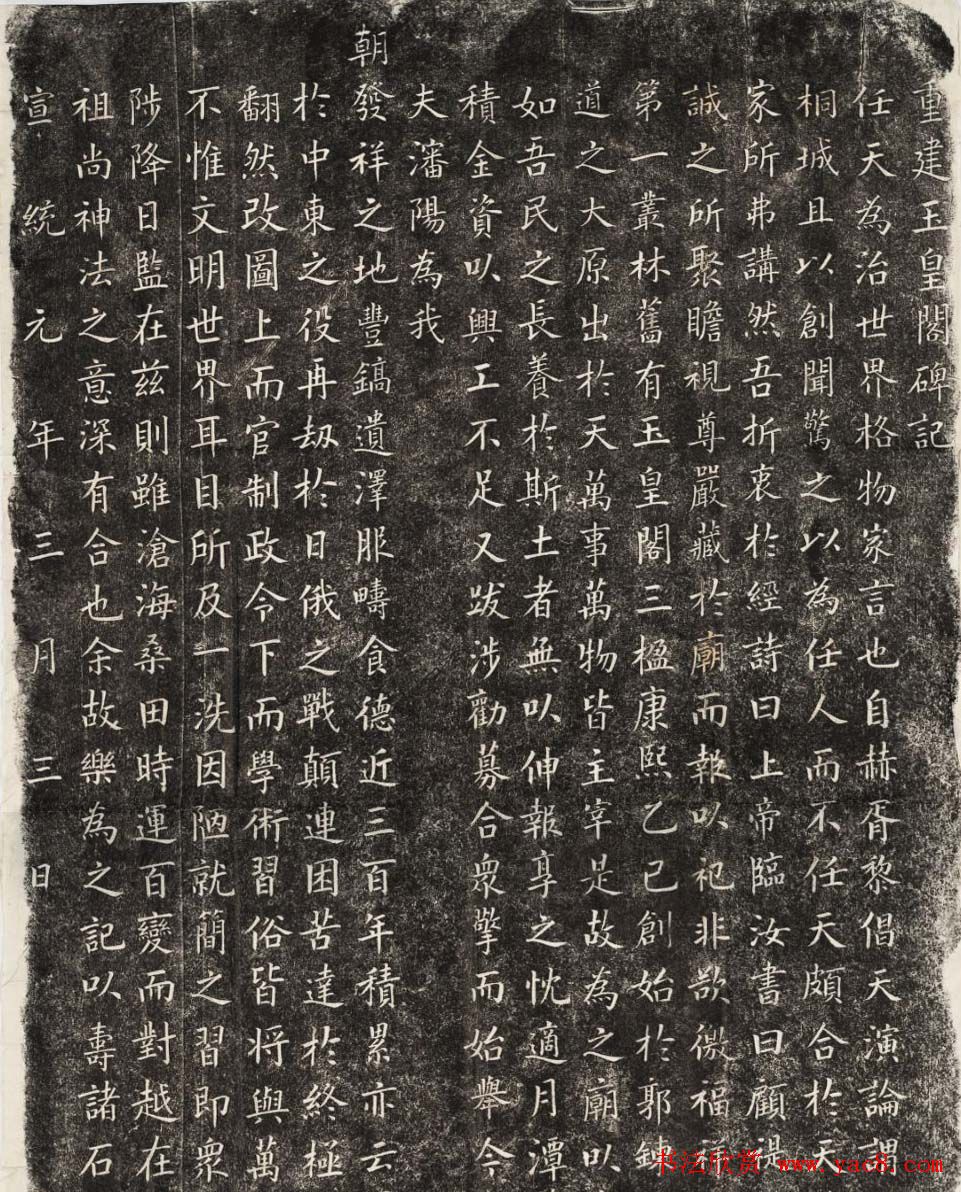 重建玉皇閣碑記
任天為治世界格物家言也自赫胥黎倡天演論謂
桐城且以創聞驚之以為任人而不任天頗合於天
家所弗講然吾折衷於經詩曰上帝臨汝書曰顧諟
誠之所聚瞻視尊嚴藏於廟而報以祀非欲徼福
第一叢林舊有玉皇閣三楹康熙乙巳創始於郭
道之大原出於天萬事萬物皆主宰是故為之廟以
如吾民之長養於斯土者無以伸報享之忱適月潭
積金資以興工不足又跋涉勸募合眾擎而始舉今
夫瀋陽為我
朝發祥之地豐鎬遺澤服疇食德近三百年積累亦云
於中東之役再刼於日俄之戰顛連困苦達於終極
翻然改圖上而官制政令下而學術習俗皆將與萬
不惟文明世界耳目所及一洗因陋就簡之習即眾
陟降日監在茲則雖滄海桑田時運百變而對越在
祖尚神法之意深有合也余故樂為之記以壽諸石
宣統元年三月三日
书法欣赏 www.yac8.com